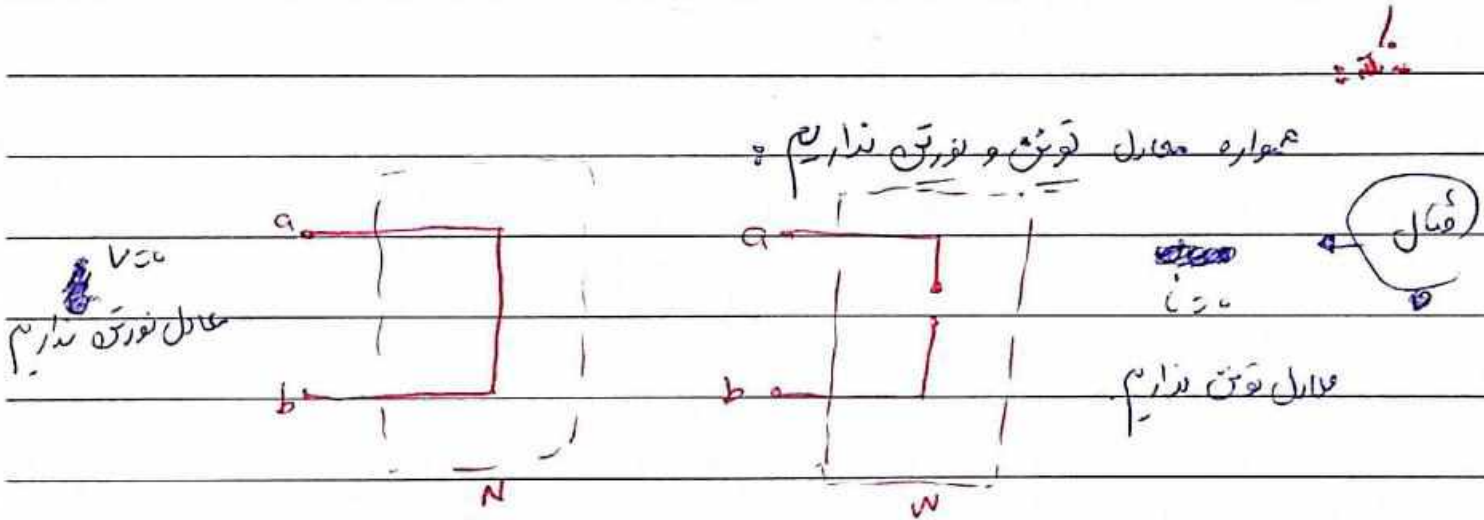 نکته:
همواره معادل تونن و نورتن نداریم:
مثال
i=0
معادل تونن نداریم.
a
b
N
v=0
معادل نورتن نداریم
a
b
N